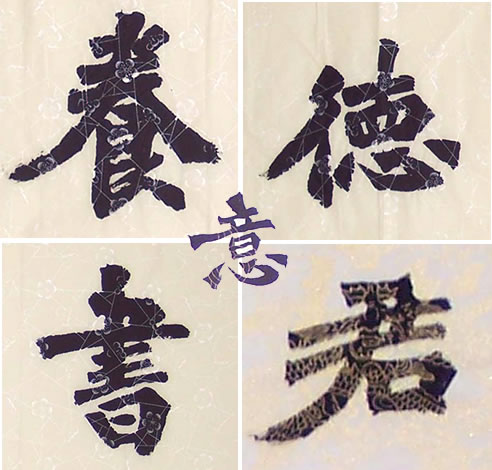 養德
意
書君